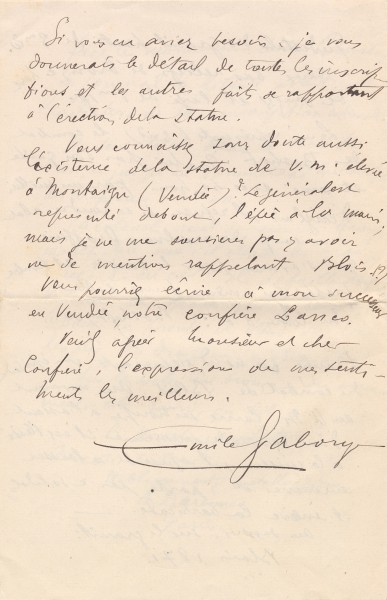 Si vous en aviez besoin, je vous
donnerais le détail de toutes les inscrip
tions et les autres faits se rapportant
à l'érection de la statue.
Vous connaissez sans doute aussi
l'existence de la statue de V. m. élevée
à Montaigu (Vendée)? Le général est
représenté debout, l'épée à la main,
mais je ne me souviens pas y avoir
vu de mentions rappelant Blois
Vous pourriez écrire à mon successeur
en Vendée, notre confrère
Veuillez agréer Monsieur et cher
Confrère, l'expression de mes senti-
ments les meilleurs.
Emile Gabory